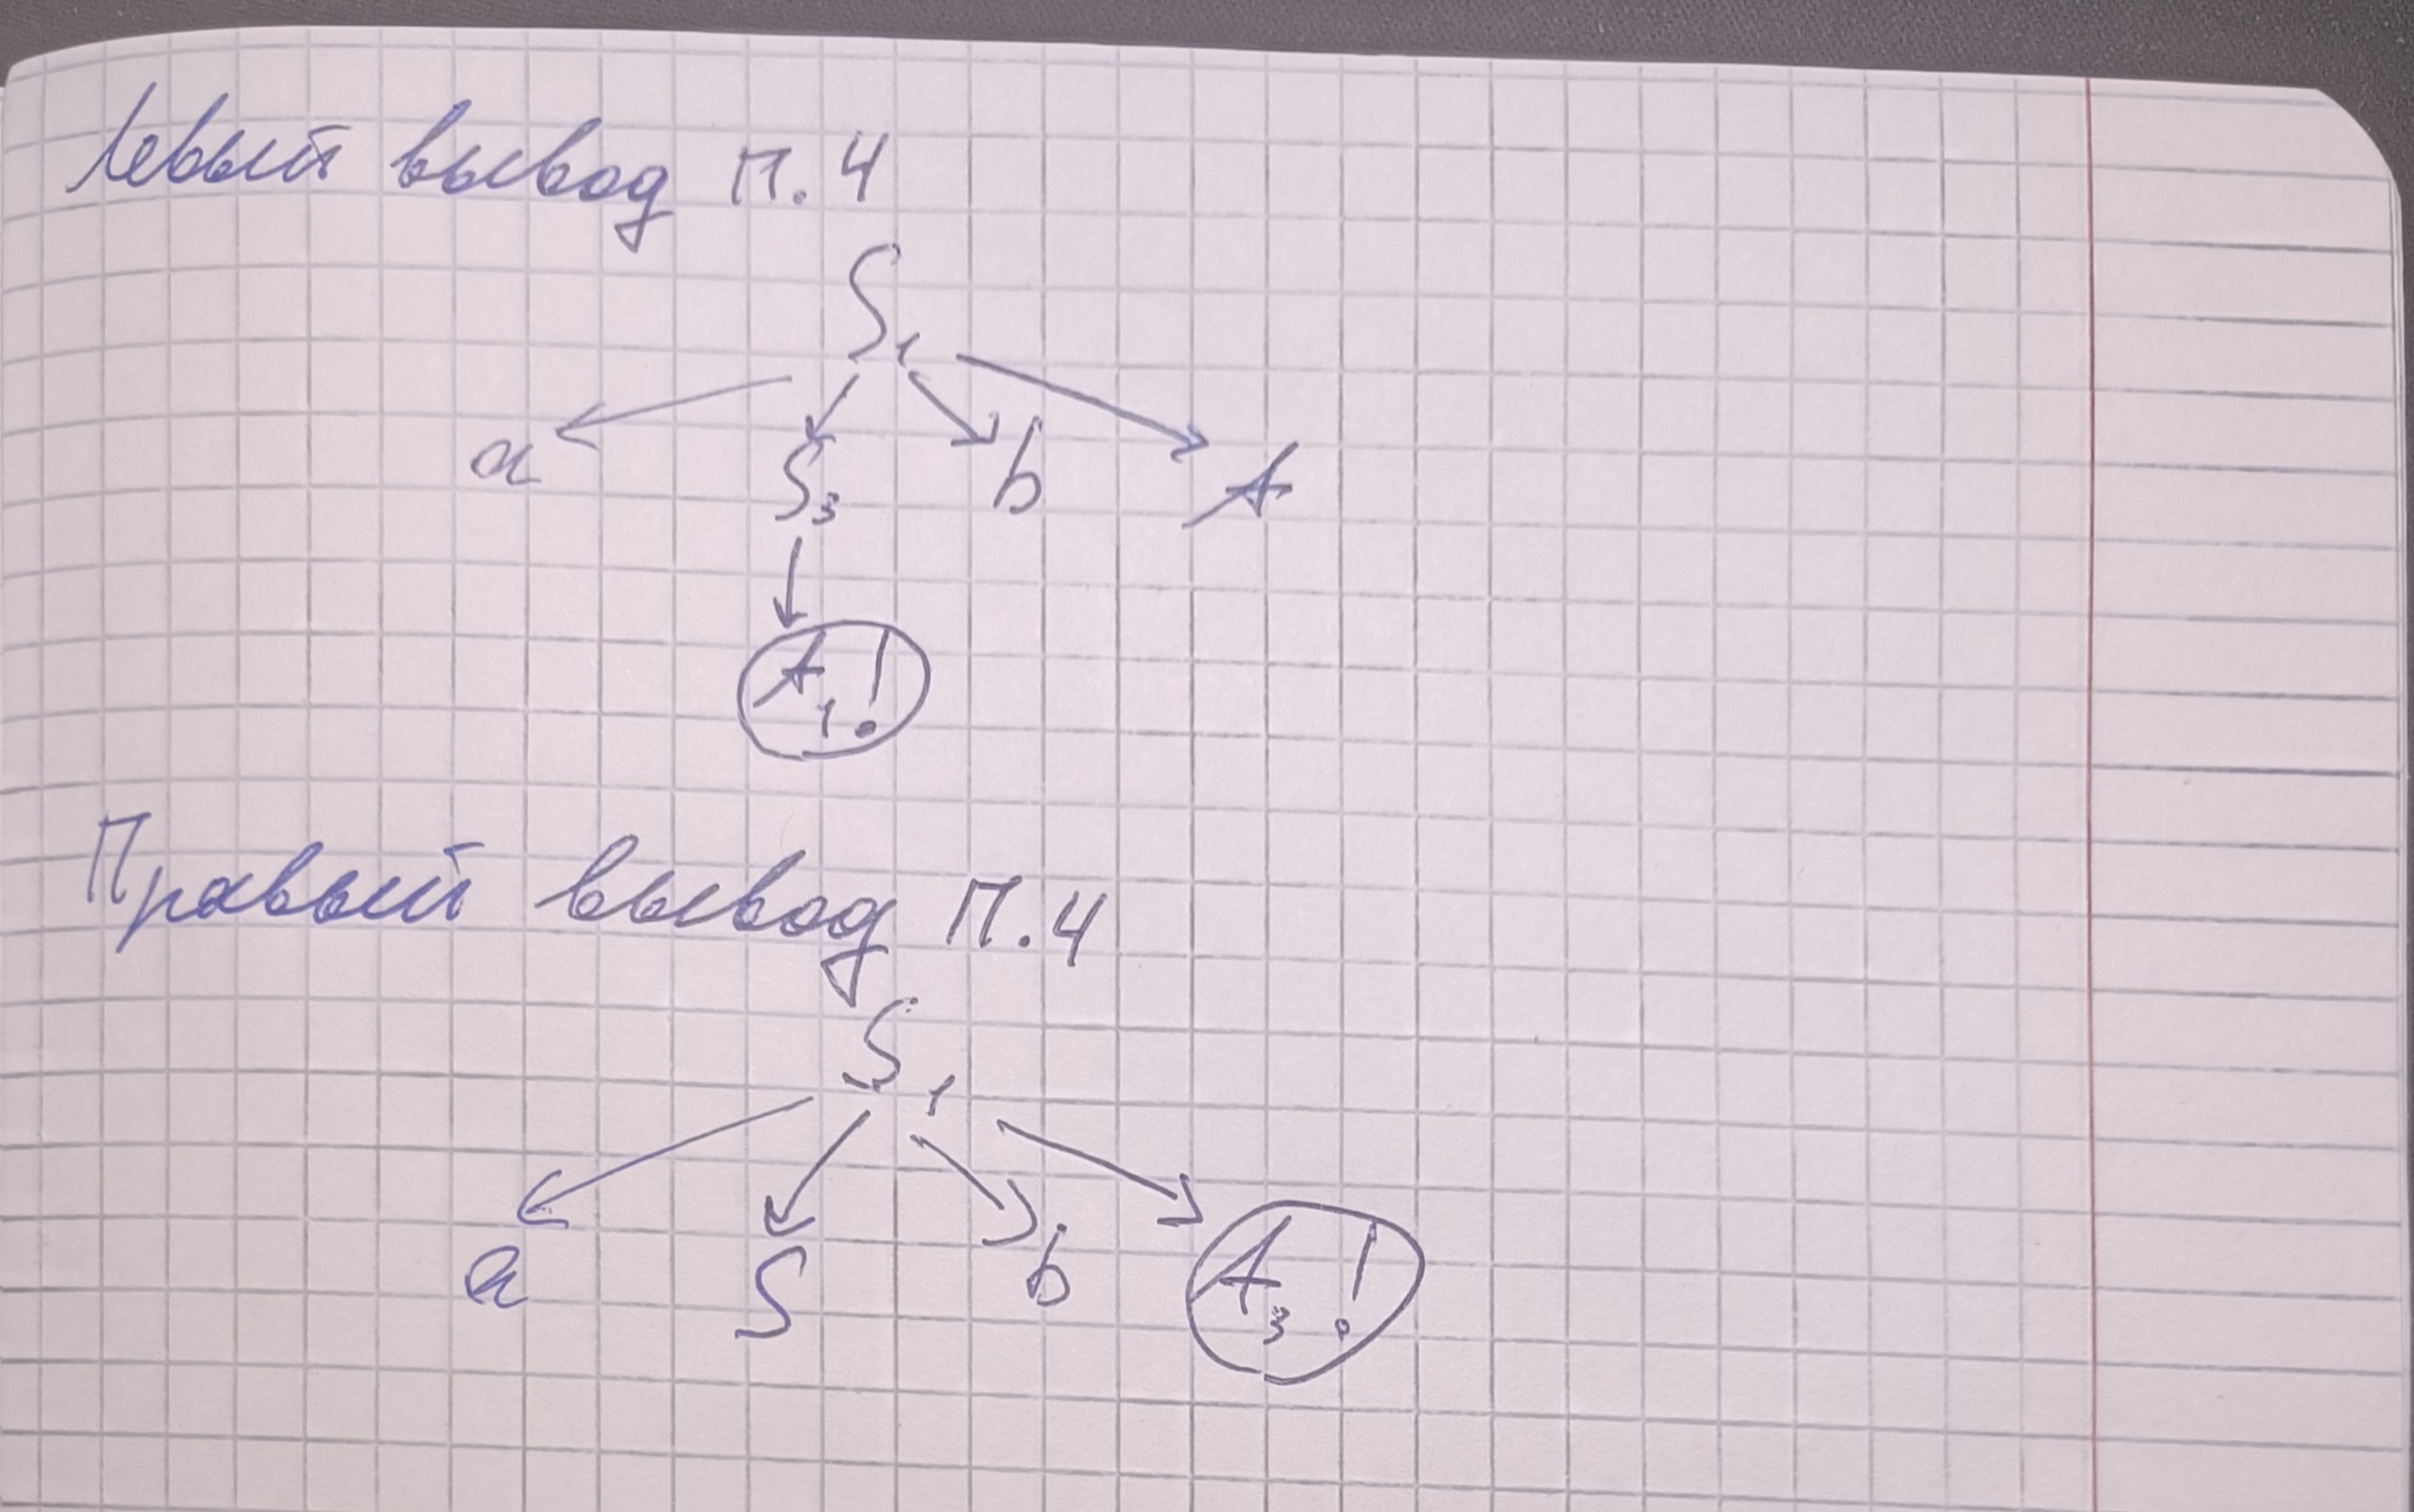 Левый вывод П.4
S₁
a S₃ b A
A₁!
Правый вывод П.4
S₁
a S b A₃!